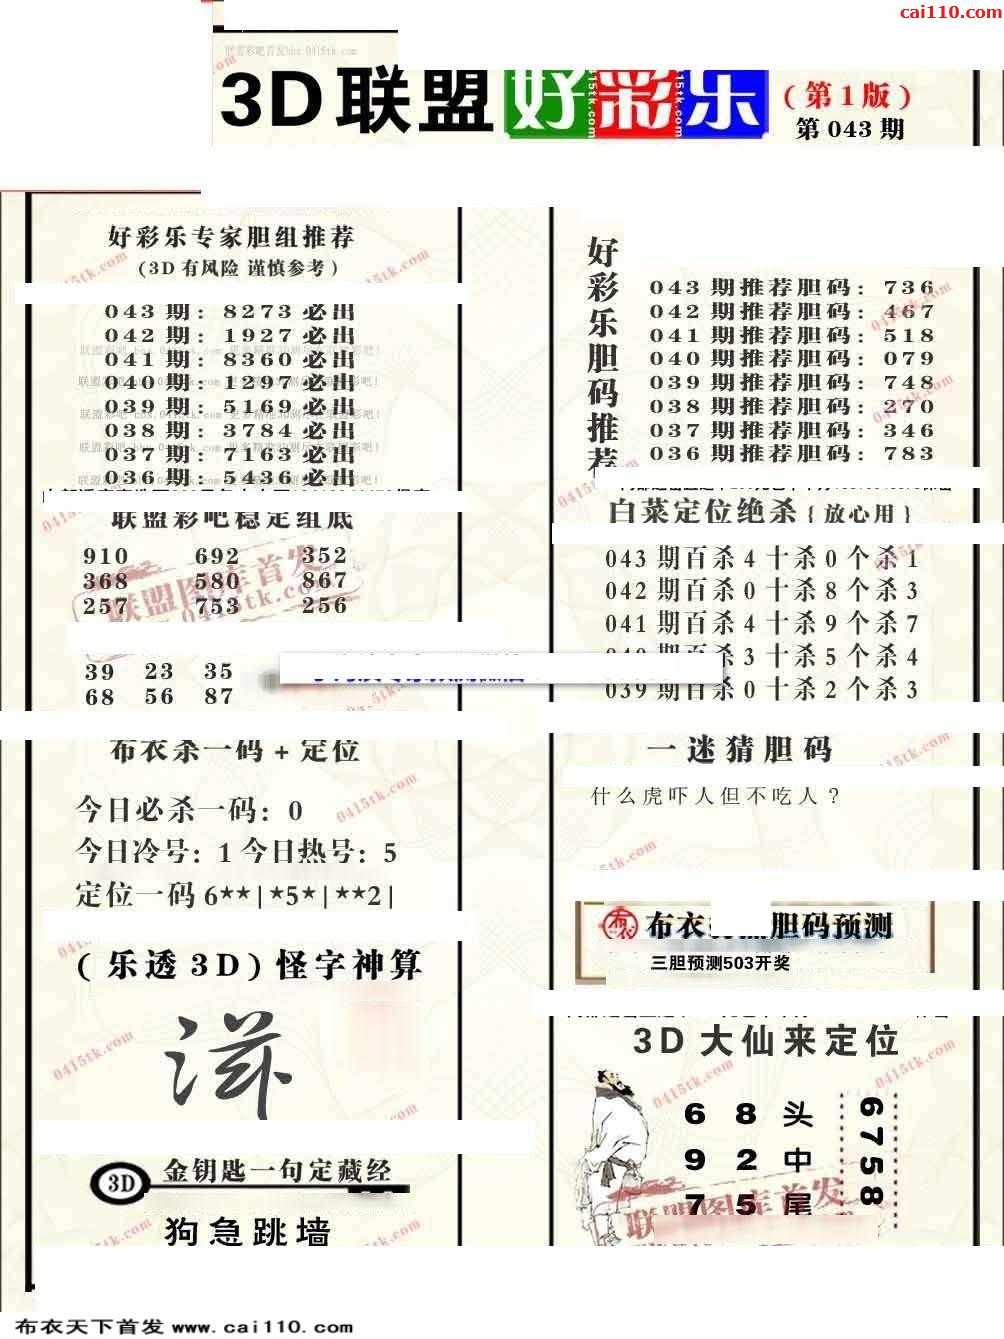 cai110.com
3D联盟好彩乐
(第1版)
第043期
好彩乐专家胆组推荐
(3D有风险 谨慎参考)
043期:8273必出
042期:1927必出
041期:8360必出
040期:1297必出
039期:5169必出
038期:3784必出
037期:7163必出
036期:5436必出
好彩乐胆码推荐
043期推荐胆码:736
042期推荐胆码:467
041期推荐胆码:518
040期推荐胆码:079
039期推荐胆码:748
038期推荐胆码:270
037期推荐胆码:346
036期推荐胆码:783
联盟彩吧稳定组底
910 692 352
368 580 867
257 753 256
联盟图库首发
0415tk.com
39 23 35
68 56 87
白菜定位绝杀{放心用}
043期百杀4十杀0个杀1
042期百杀0十杀8个杀3
041期百杀4十杀9个杀7
040期百杀3十杀5个杀4
039期百杀0十杀2个杀3
布衣杀一码+定位
今日必杀一码:0
今日冷号:1今日热号:5
定位一码6**|*5*|**2|
一迷猜胆码
什么虎吓人但不吃人?
布衣
胆码预测
三胆预测503开奖
(乐透3D)怪字神算
3D大仙来定位
6 8头
9 2中
7 5尾
6758
联盟图库首发
3D
金钥匙一句定藏经
狗急跳墙
布衣天下首发 www.cai110.com